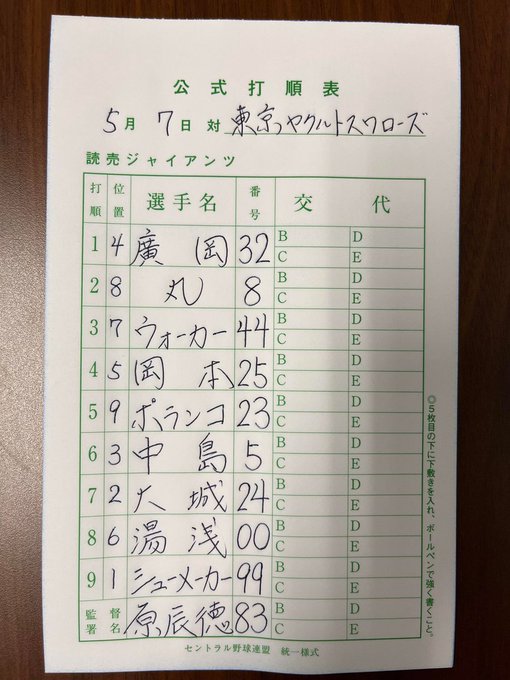 公式打順表
5月7日対 東京ヤクルトスワローズ
読売ジャイアンツ
打順 位置 選手名 番号 交代
1 4 廣岡 32 B D
C E
2 8 丸 8 B D
C E
3 7 ウォーカー 44 B D
C E
4 5 岡本 25 B D
C E
5 9 ポランコ 23 B D
C E
6 3 中島 5 B D
C E
7 2 大城 24 B D
C E
8 6 湯浅 00 B D
C E
9 1 シューメーカー 99 B D
C E
監督署名 原辰徳 83 B D
C E
セントラル野球連盟 統一様式
◎5枚目の下に下敷きを入れ、ボールペンで強く書くこと。